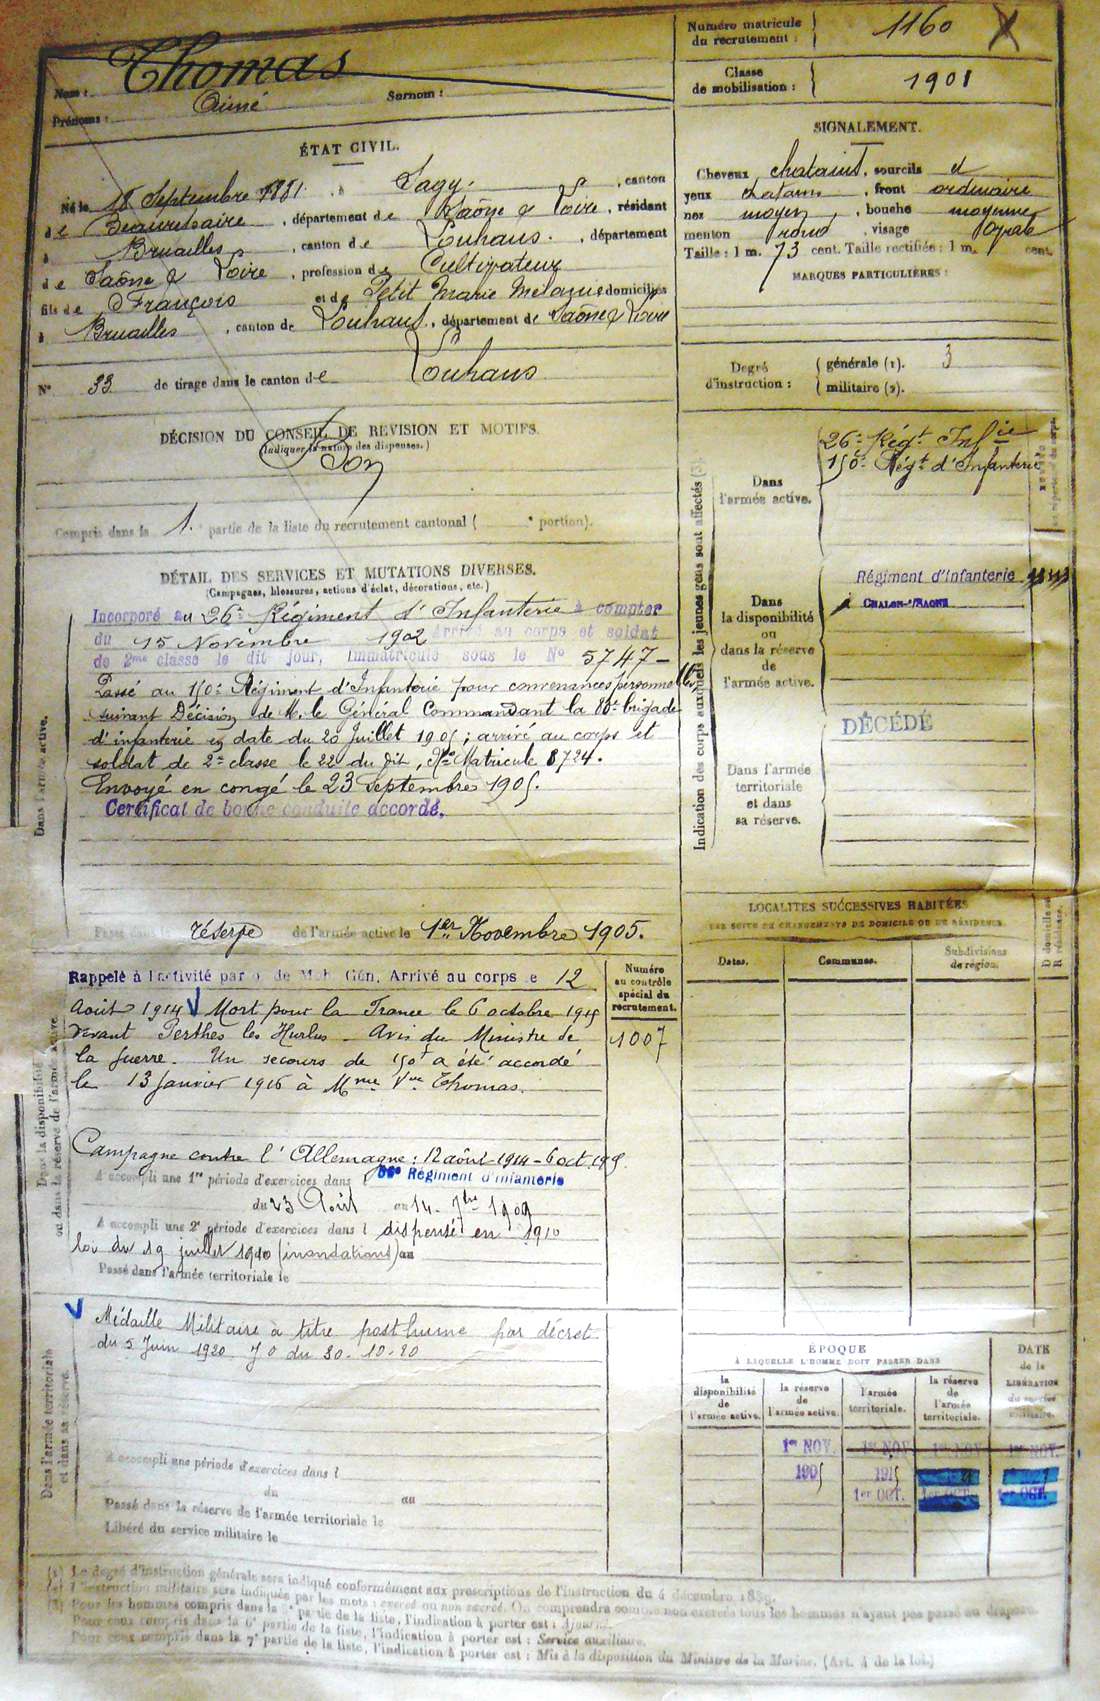 Numéro matricule du recrutement : 1160
Classe de mobilisation : 1901
Nom : Thomas
Prénoms : Aimé Surnom :
ÉTAT CIVIL.
Né le 18 Septembre 1881, à Sagy, canton
de Beaurepaire, département de Saône & Loire, résidant
à Bruailles, canton de Louhans, département
de Saône & Loire, profession de Cultivateur
fils de François et de Petit Marie domiciliés
à Bruailles, canton de Louhans, département de Saône & Loire
N° 33 de tirage dans le canton de Louhans
SIGNALEMENT.
Cheveux chatains, sourcils et
yeux chatains, front ordinaire
nez moyen, bouche moyenne
menton rond, visage ovale
Taille : 1 m. 73 cent. Taille rectifiée : 1 m. cent.
MARQUES PARTICULIÈRES :
Degré d'instruction :
générale (1). 3
militaire (2).
DÉCISION DU CONSEIL DE REVISION ET MOTIFS.
(Indiquer la nature des dispenses.)
Bon
Compris dans la 1 partie de la liste du recrutement cantonal ( portion).
DÉTAIL DES SERVICES ET MUTATIONS DIVERSES.
(Campagnes, blessures, actions d'éclat, décorations, etc.)
Dans l'armée active.
Incorporé au 26e Régiment d'Infanterie à compter
du 15 Novembre 1902 Arrivé au corps et soldat
de 2me classe le dit jour, immatriculé sous le N° 5747
Passé au 150e Régiment d'Infanterie pour convenances personnelles
suivant Décision de M. le Général Commandant la brigade
d'infanterie en date du 20 Juillet 1905 ; arrivé au corps et
soldat de 2e classe le 22 du dit, No Matricule 8724.
Envoyé en congé le 23 Septembre 1905.
Certificat de bonne conduite accordé.
Passé dans la réserve de l'armée active le 1er Novembre 1905.
Indication des corps auxquels les jeunes gens sont affectés
Dans l'armée active.
26e Régt Infie
150e Régt d'Infanterie
Dans la disponibilité ou dans la réserve de l'armée active.
Régiment d'infanterie
CHALON-s/SAONE
DÉCÉDÉ
Dans l'armée territoriale et dans sa réserve.
LOCALITÉS SUCCESSIVES HABITÉES
PAR SUITE DE CHANGEMENTS DE DOMICILE OU DE RÉSIDENCE.
Dates. Communes. Subdivisions de région. D domicile ou R résidence.
Dans la disponibilité ou dans la réserve de l'armée active.
Rappelé à l'activité par o. de Mob. Gén. Arrivé au corps le 12
Août 1914 Mort pour la France le 6 octobre 1915
devant Perthes les Hurlus - Avis du Ministre de
la Guerre. Un secours de 150f a été accordé
le 13 janvier 1916 à Mme Vve Thomas.
Numéro au contrôle spécial du recrutement.
1007
Campagne contre l'Allemagne : 12 août 1914 - 6 oct. 1915.
A accompli une 1re période d'exercices dans l Régiment d'infanterie
du 23 Août au 14 7bre 1909
A accompli une 2e période d'exercices dans l dispensé en 1910
loi du 19 juillet 1910 (inondations) au
Passé dans l'armée territoriale le
Dans l'armée territoriale et dans sa réserve.
Médaille Militaire à titre posthume par décret
du 5 Juin 1920 JO du 30-10-20
A accompli une période d'exercices dans l
du au
Passé dans la réserve de l'armée territoriale le
Libéré du service militaire le
ÉPOQUE
À LAQUELLE L'HOMME DOIT PASSER DANS
DATE de la LIBÉRATION du service militaire.
la disponibilité de l'armée active. la réserve de l'armée active. l'armée territoriale. la réserve de l'armée territoriale.
1er NOV. 1er NOV. 1er NOV. 1er NOV.
1905 1915
1er OCT. 1er OCT. 1er OCT.
(1) Le degré d'instruction générale sera indiqué conformément aux prescriptions de l'instruction du 4 décembre 1889.
(2) L'instruction militaire sera indiquée par les mots : exercé ou non exercé. On comprendra comme non exercés tous les hommes n'ayant pas passé au drapeau.
(3) Pour les hommes compris dans la partie de la liste, l'indication à porter est : Ajourné.
Pour ceux compris dans la 6e partie de la liste, l'indication à porter est : Service auxiliaire.
Pour ceux compris dans la 7e partie de la liste, l'indication à porter est : Mis à la disposition du Ministre de la Marine. (Art. 4 de la loi.)